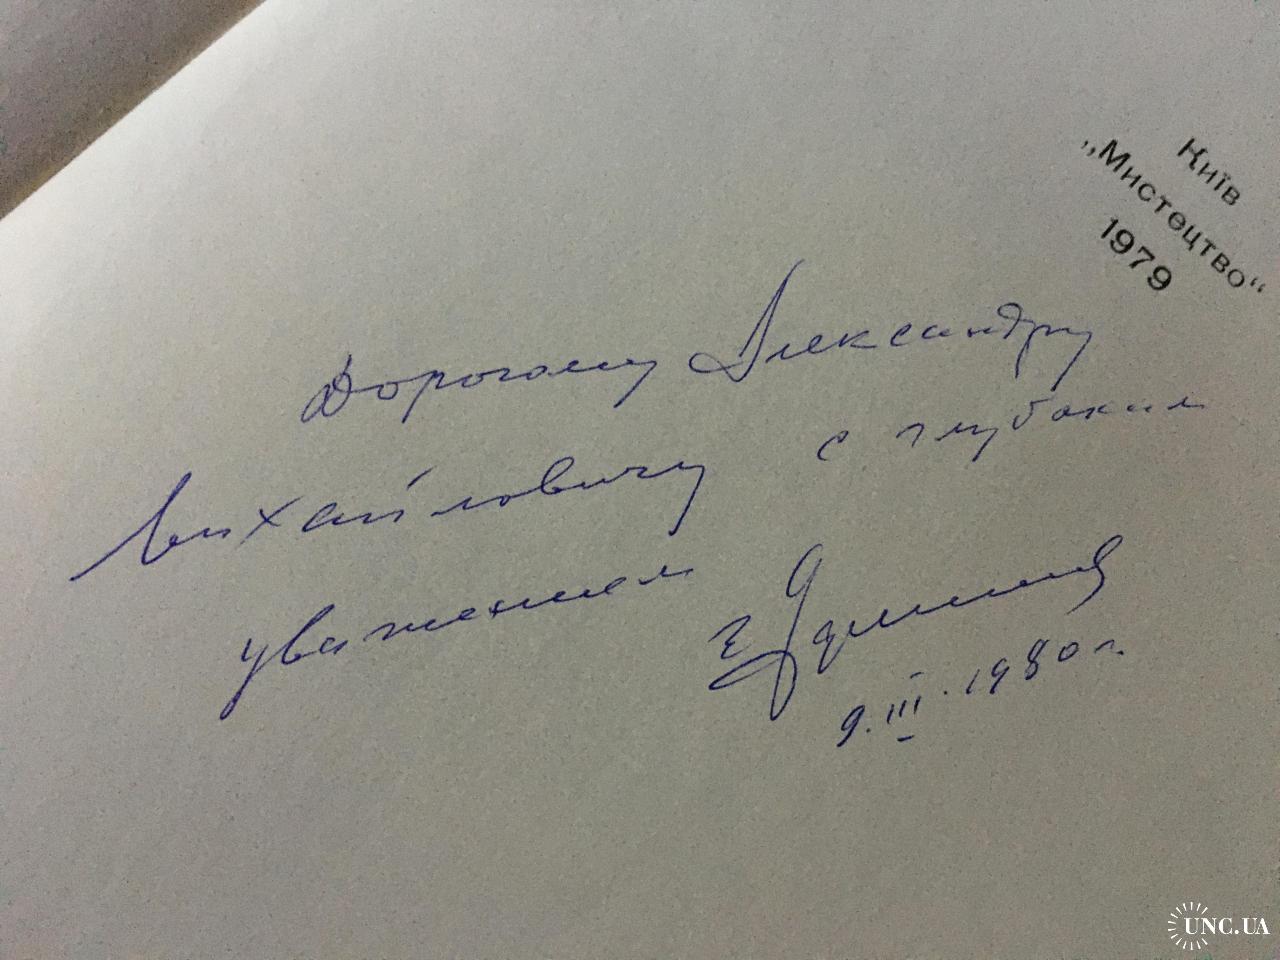 Київ
„Мистецтво“
1979
Дорогому Александру
Михайловичу с глубоким
уважением
9.III.1980 г.
UNC.UA